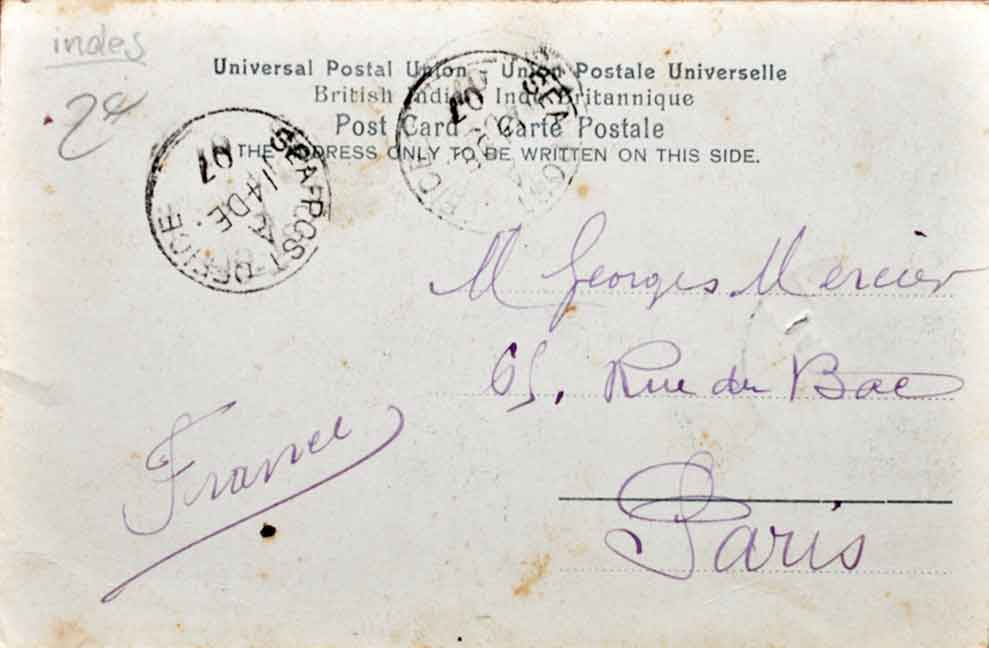 indes
2
Universal Postal Union - Union Postale Universelle
British India - Inde Britannique
Post Card - Carte Postale
THE ADDRESS ONLY TO BE WRITTEN ON THIS SIDE.
SEA POST OFFICE
A
14 DE.
07
SEA POST OFFICE
07
M Georges Mercier
65, Rue du Bac
Paris
France